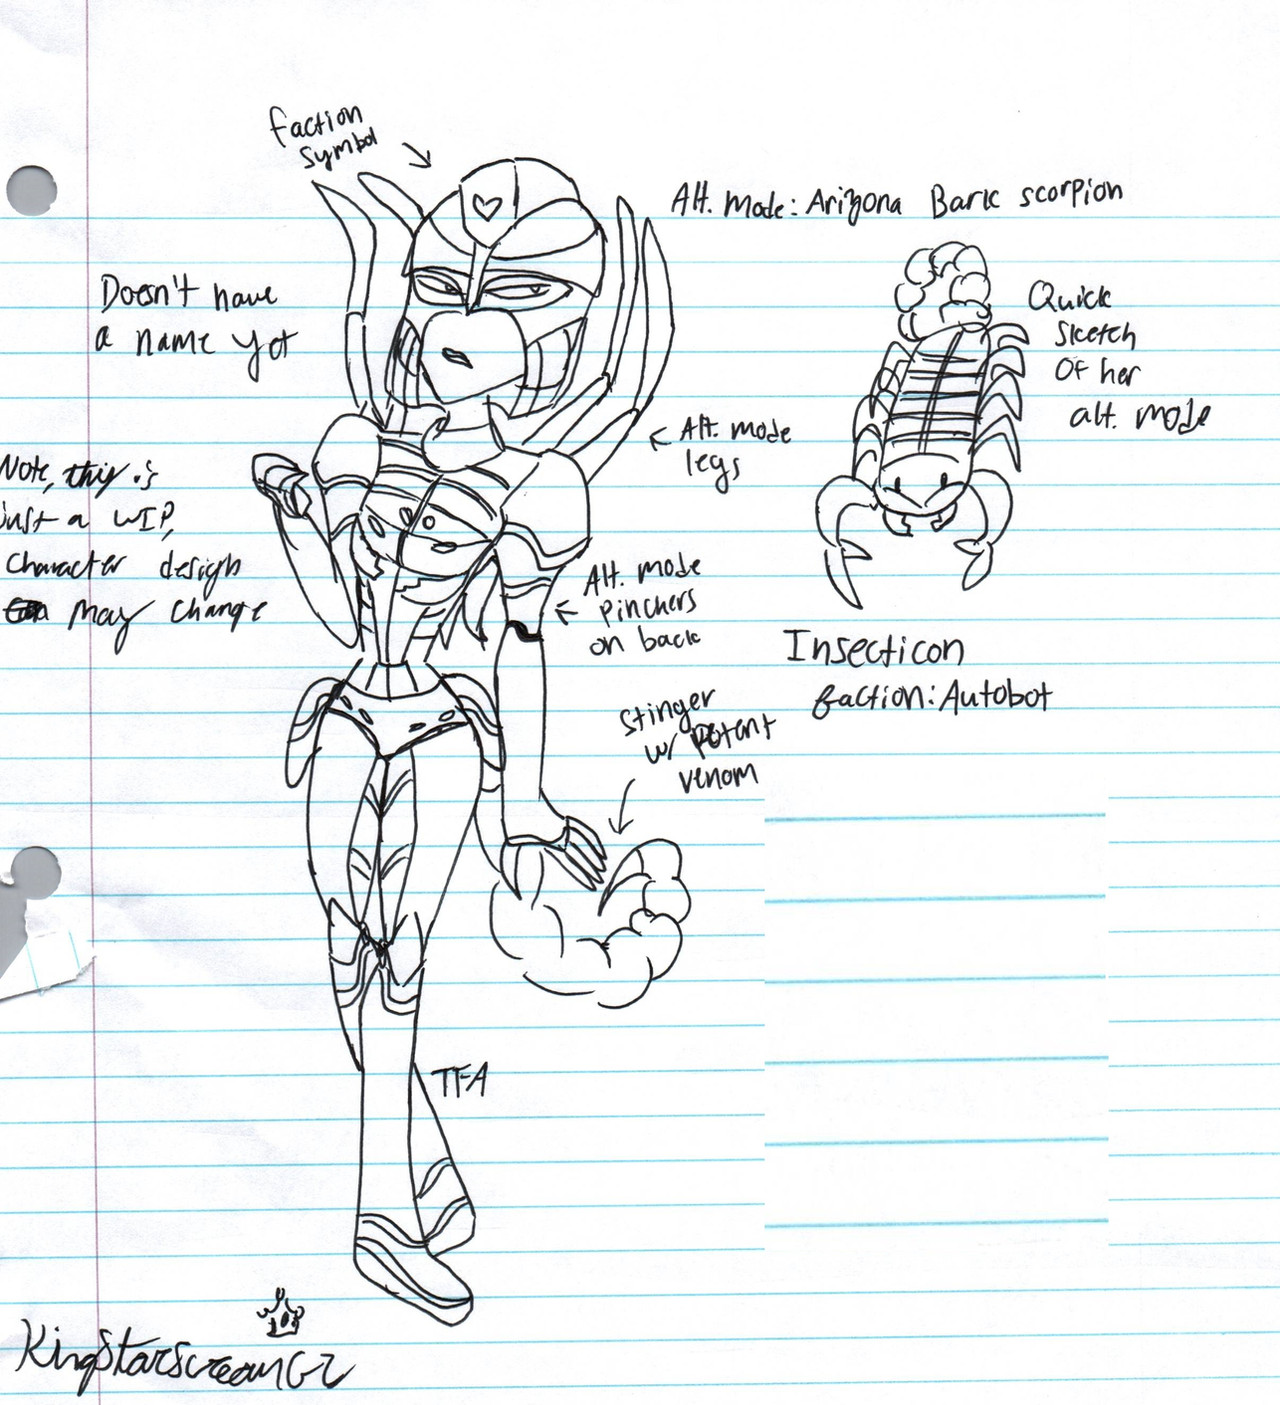 faction
symbol
Alt. mode: Arizona Bark scorpion
Doesn't have
a name yet
Quick
sketch
Of her
alt. mode
Alt. mode
legs
Note, this is
just a WIP,
Character design
may change
Alt. mode
pinchers
on back
Insecticon
faction: Autobot
Stinger
w/ potent
venom
TFA
KingStarscream62